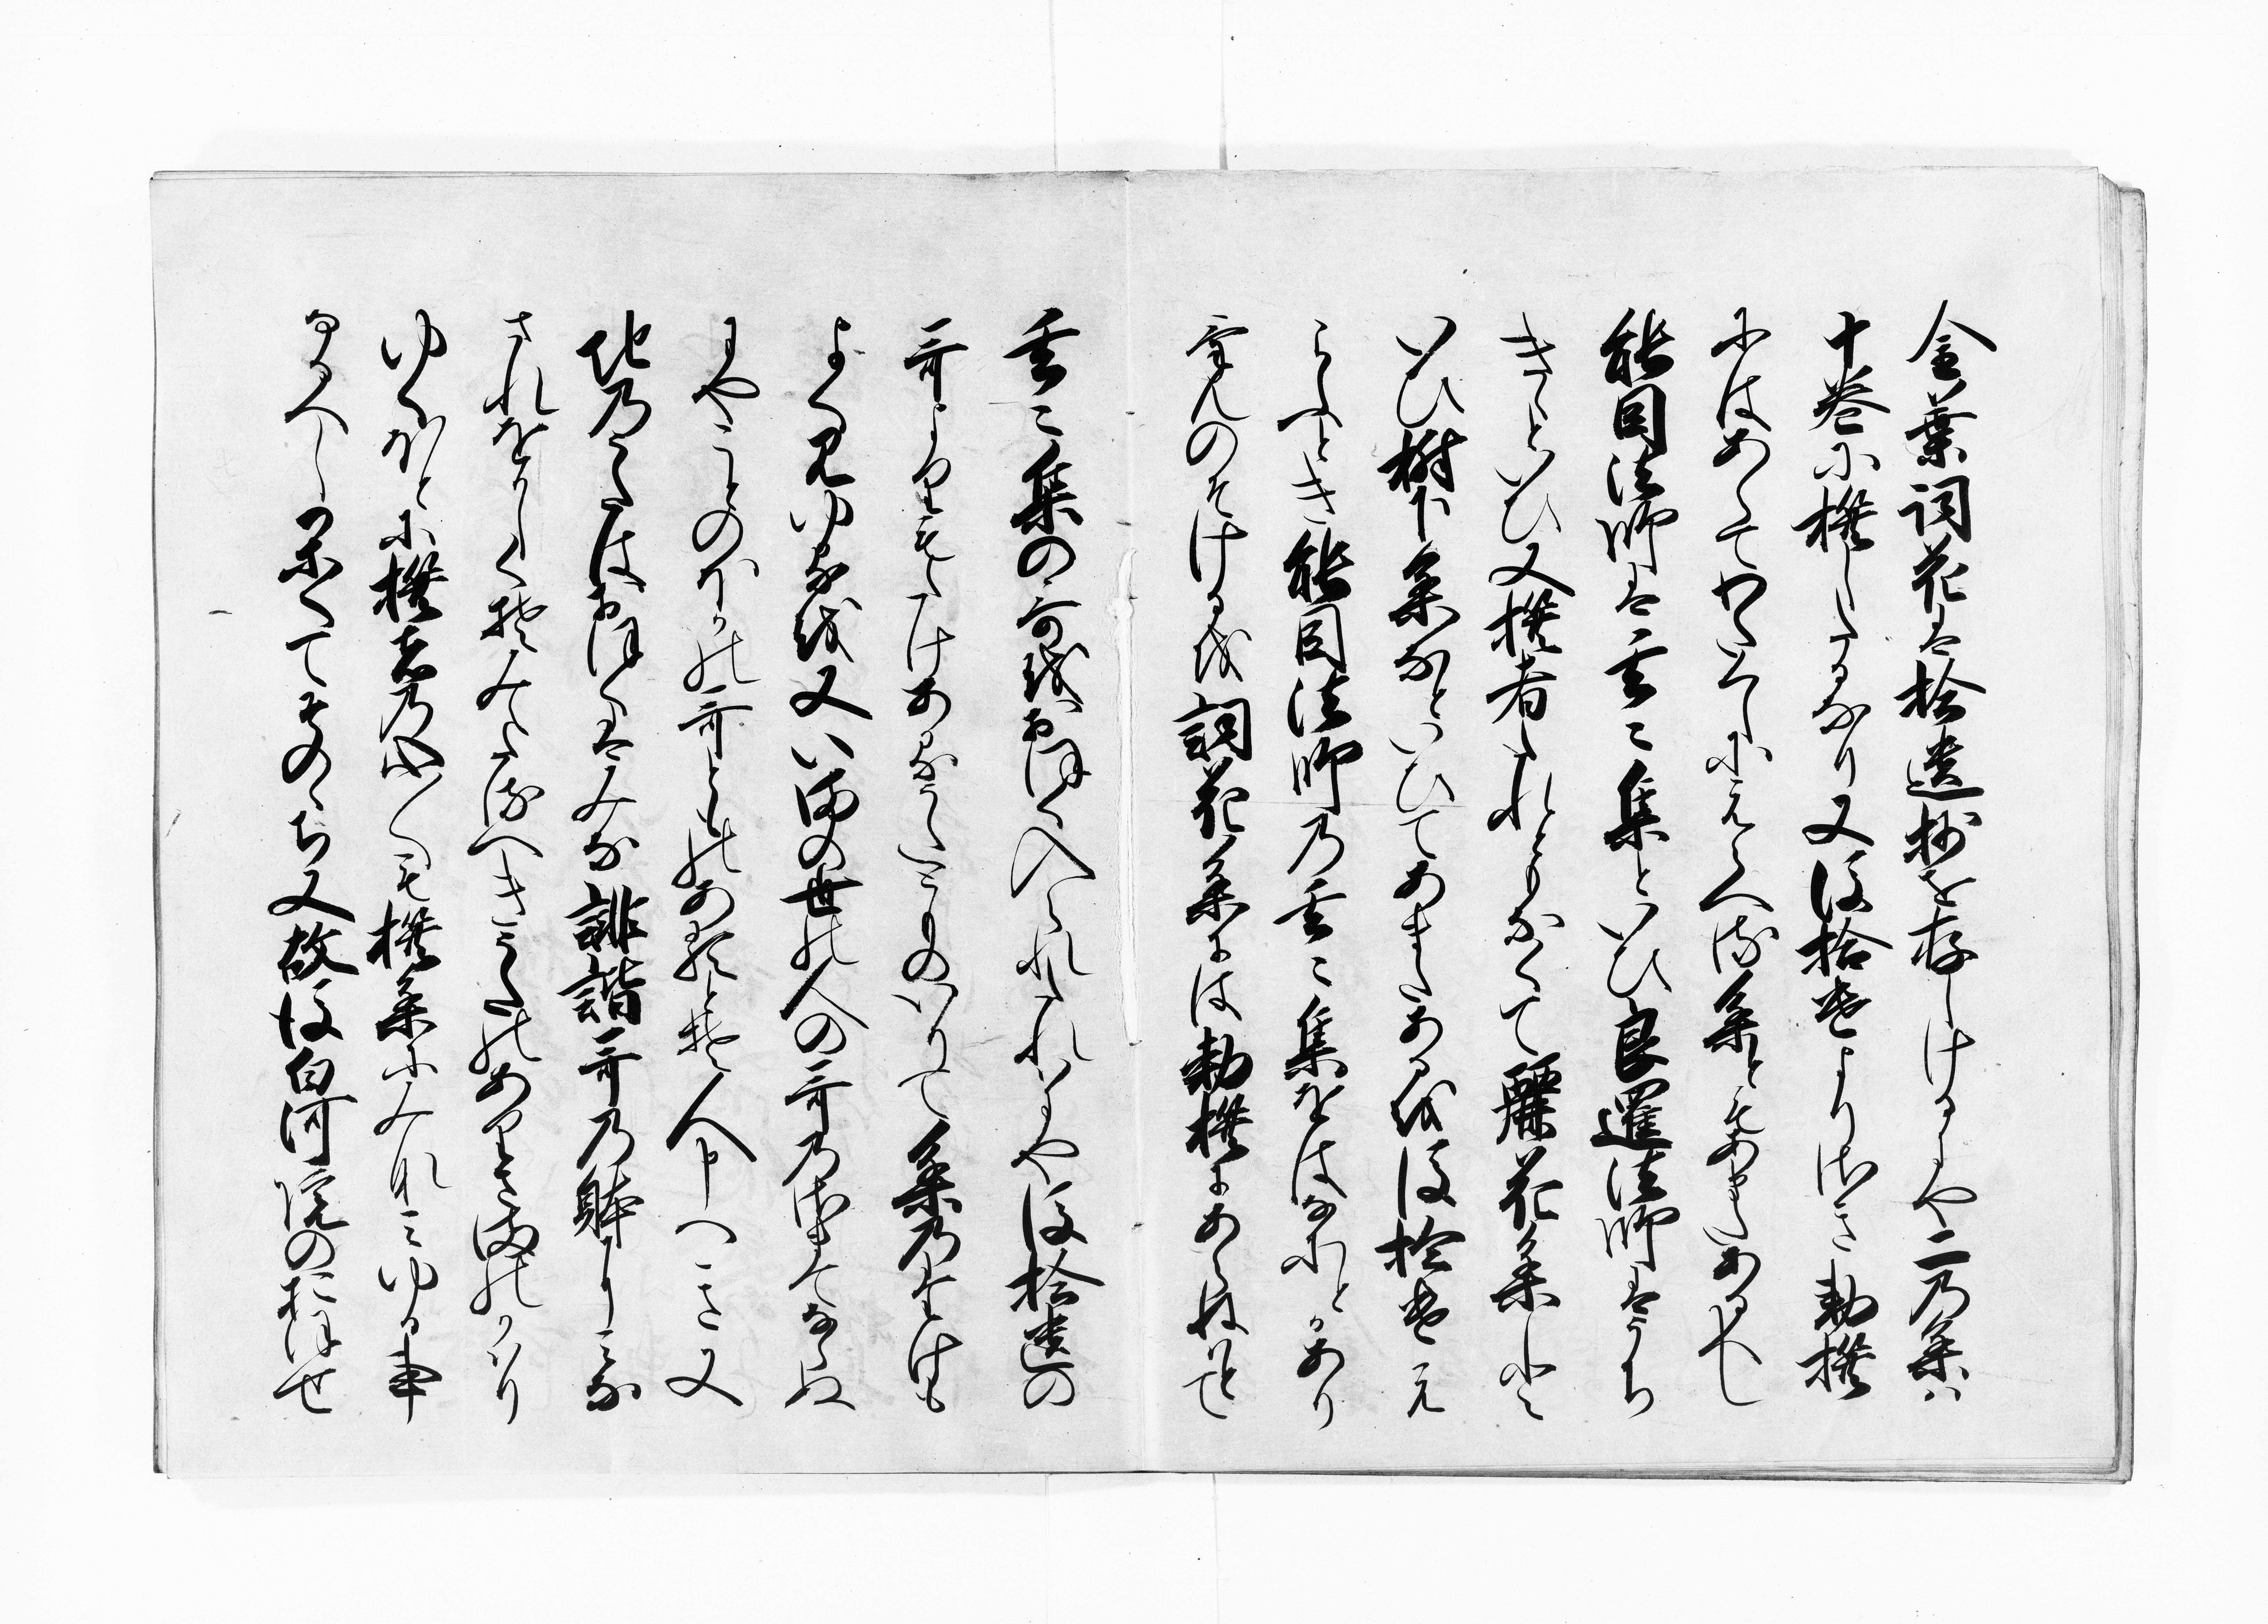 金葉詞花は拾遺抄を存しけるにや二乃集は
十巻に撰したるなり又後拾遺よりさき勅撰
にはあらてわたくしにえらへる集ともあまたあるへし
能因法師は玄々集といひ良暹法師はうち
きゝといひ又撰者たれともなくて麗花集と
いひ樹下集なといひてあまたある越後拾遺え
らふとき能因法師乃玄々集をはなにとかあり
けんのそける越詞花集には勅撰にあらねはとて
玄々集の哥越おほくいれられたれはにや後拾遺の
哥よりもたけある哥ともの
よく見ゆる越又いまの世の人の哥乃さまてならぬ
にやことのほかの哥とものあるとそ人申へき又
地乃うたはおほくはみな誹諧哥乃躰にみな
されをかしくそみたるへきうたのありさまのかはり
ゆくほとに撰者乃心〳〵も撰集にみれはみゆる事
なるへしかくてそのゝち又故後白河院のおほせ